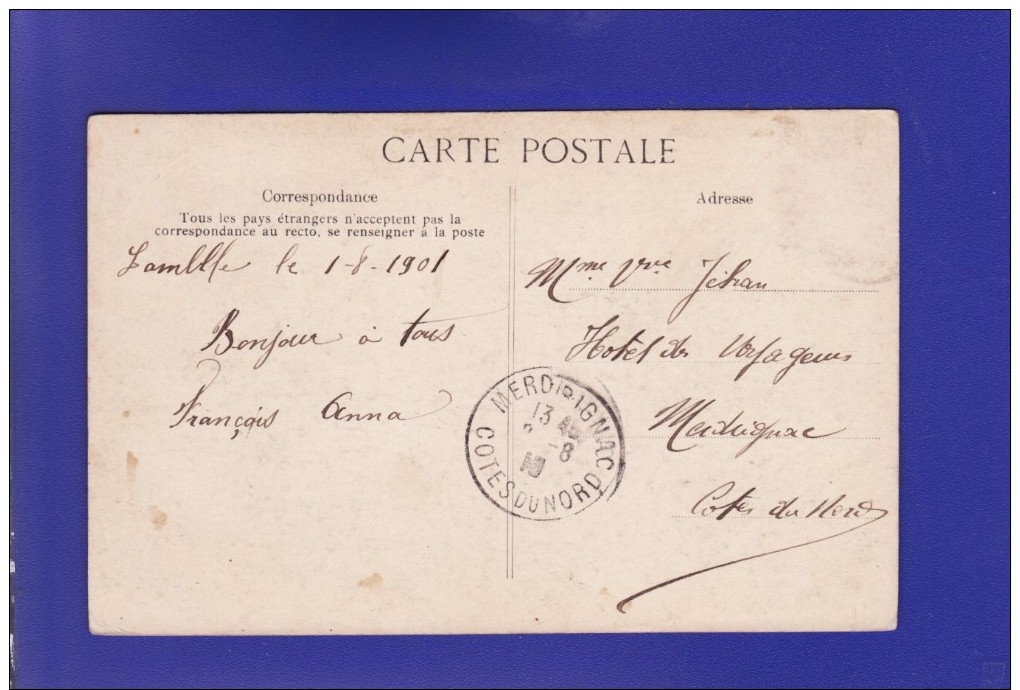 CARTE POSTALE
Correspondance
Tous les pays étrangers n'acceptent pas la
correspondance au recto, se renseigner à la poste
Lamblle le 1-8-1901
Bonjour à tous
François Anna
Adresse
Mme Vve Jehan
Hotel des Voyageurs
Merdrignac
Cotes du Nord
MERDRIGNAC
13
-8
COTES DU NORD